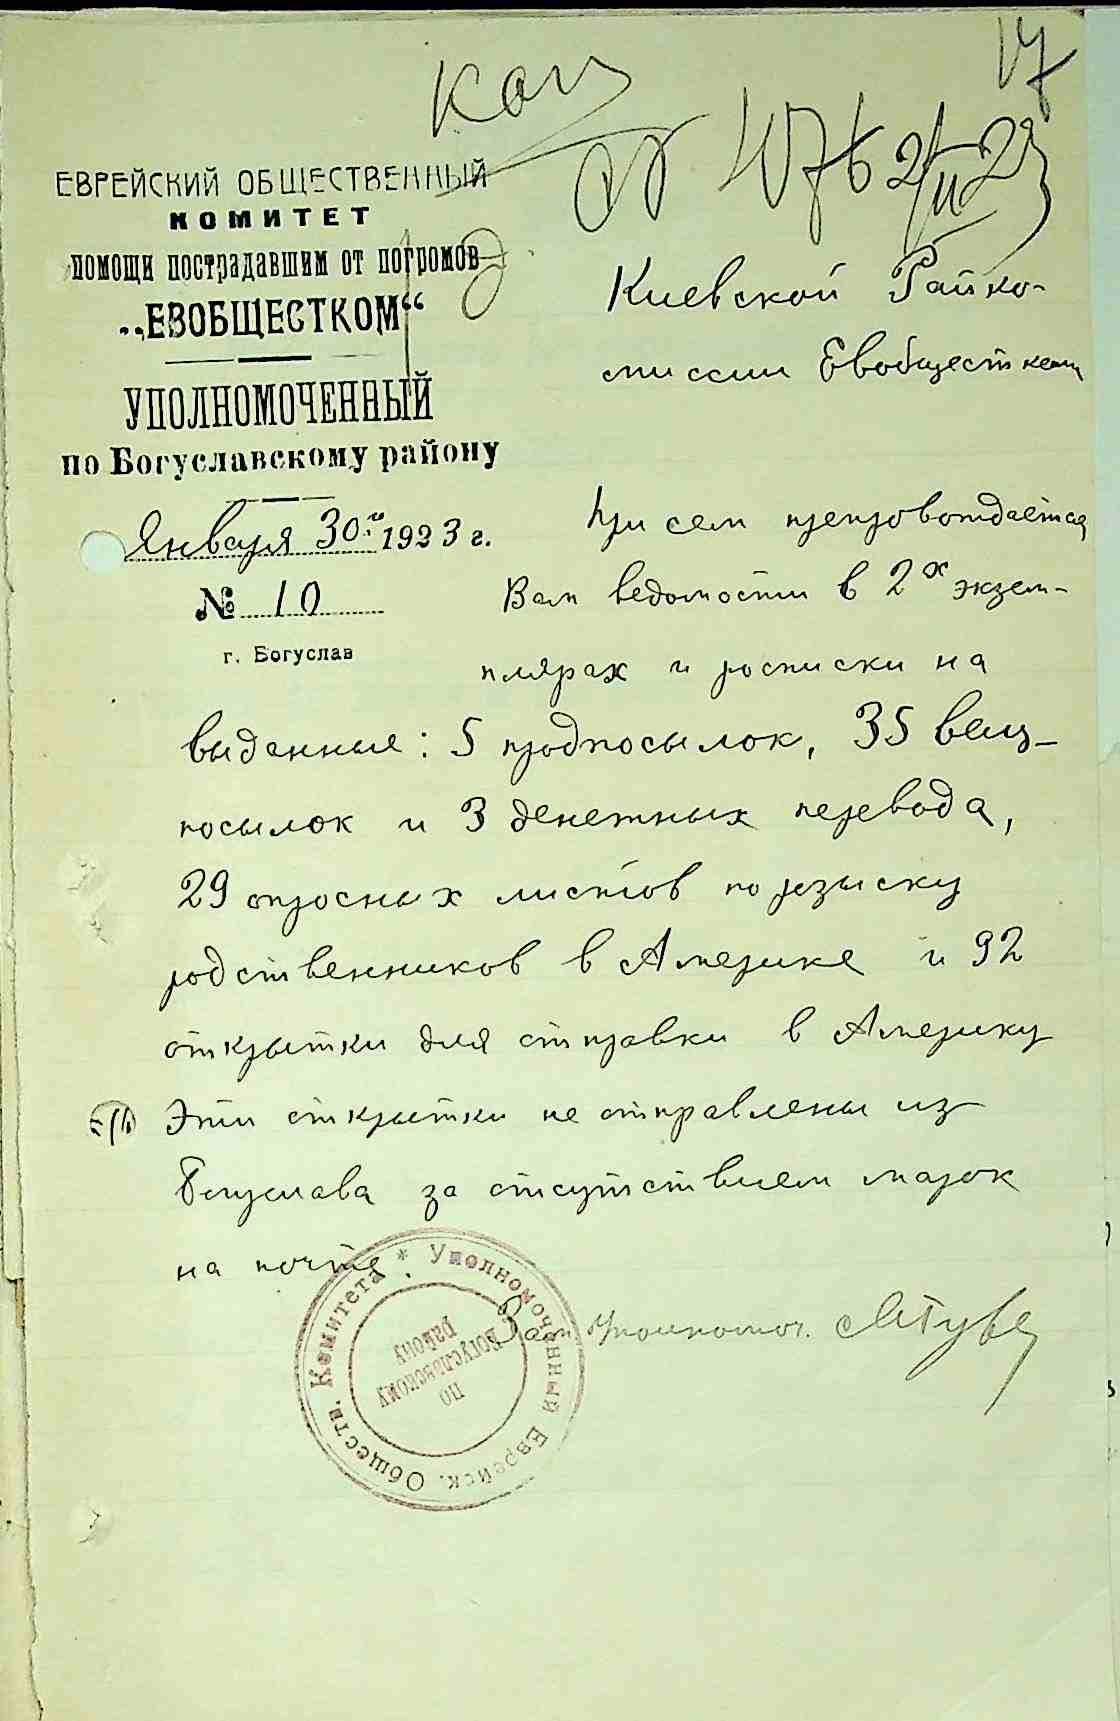 17
1076 2/II 23
ЕВРЕЙСКИЙ ОБЩЕСТВЕННЫЙ
КОМИТЕТ
ПОМОЩИ ПОСТРАДАВШИМ ОТ ПОГРОМОВ
„ЕВОБЩЕСТКОМ“
УПОЛНОМОЧЕННЫЙ
по Богуславскому району
Января 30го 1923 г.
№ 10
г. Богуслав
Киевской Райко-
миссии Евобщесткома
При сем препровождается
Вам ведомости в 2х экзем-
плярах и росписки на
выданные: 5 продпосылок, 35 вещ-
посылок и 3 денежных перевода,
29 опросных листов по розыску
родственников в Америке и 92
открытки для отправки в Америку
Эти открытки не отправлены из
Богуслава за отсутствием марок
на почте.
Зам. Уполномоч.
* Уполномоченный Еврейск. Обществ. Комитета
по Богуславскому району